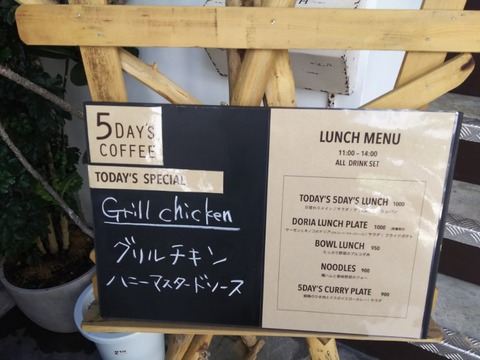 5 DAY'S
COFFEE
TODAY'S SPECIAL
Grill chicken
グリルチキン
ハニーマスタードソース
LUNCH MENU
11:00 - 14:00
ALL DRINK SET
TODAY'S 5DAY'S LUNCH 1000
DORIA LUNCH PLATE 1000
BOWL LUNCH 950
NOODLES 900
5DAY'S CURRY PLATE 900